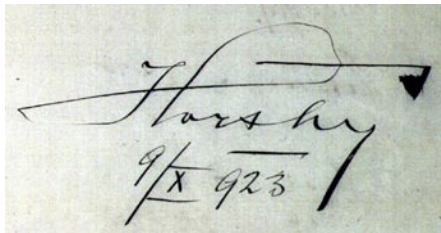 Horthy
9/X 923